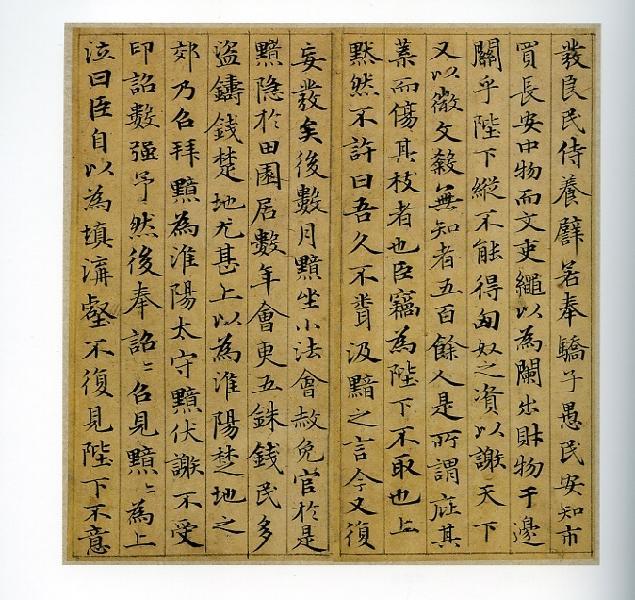 發良民侍養譬若奉驕子愚民安知市
買長安中物而文吏繩以為闌出財物于邊
關乎陛下縱不能得匈奴之資以謝天下
又以微文殺無知者五百餘人是所謂庇其
葉而傷其枝者也臣竊為陛下不取也上
默然不許曰吾久不聞汲黯之言今又復
妄發矣後數月黯坐小法會赦免官於是
黯隱於田園居數年會更五銖錢民多
盜鑄錢楚地尤甚上以為淮陽楚地之
郊乃召拜黯為淮陽太守黯伏謝不受
印詔數強予然後奉詔〻召見黯〻為上
泣曰臣自以為填溝壑不復見陛下不意